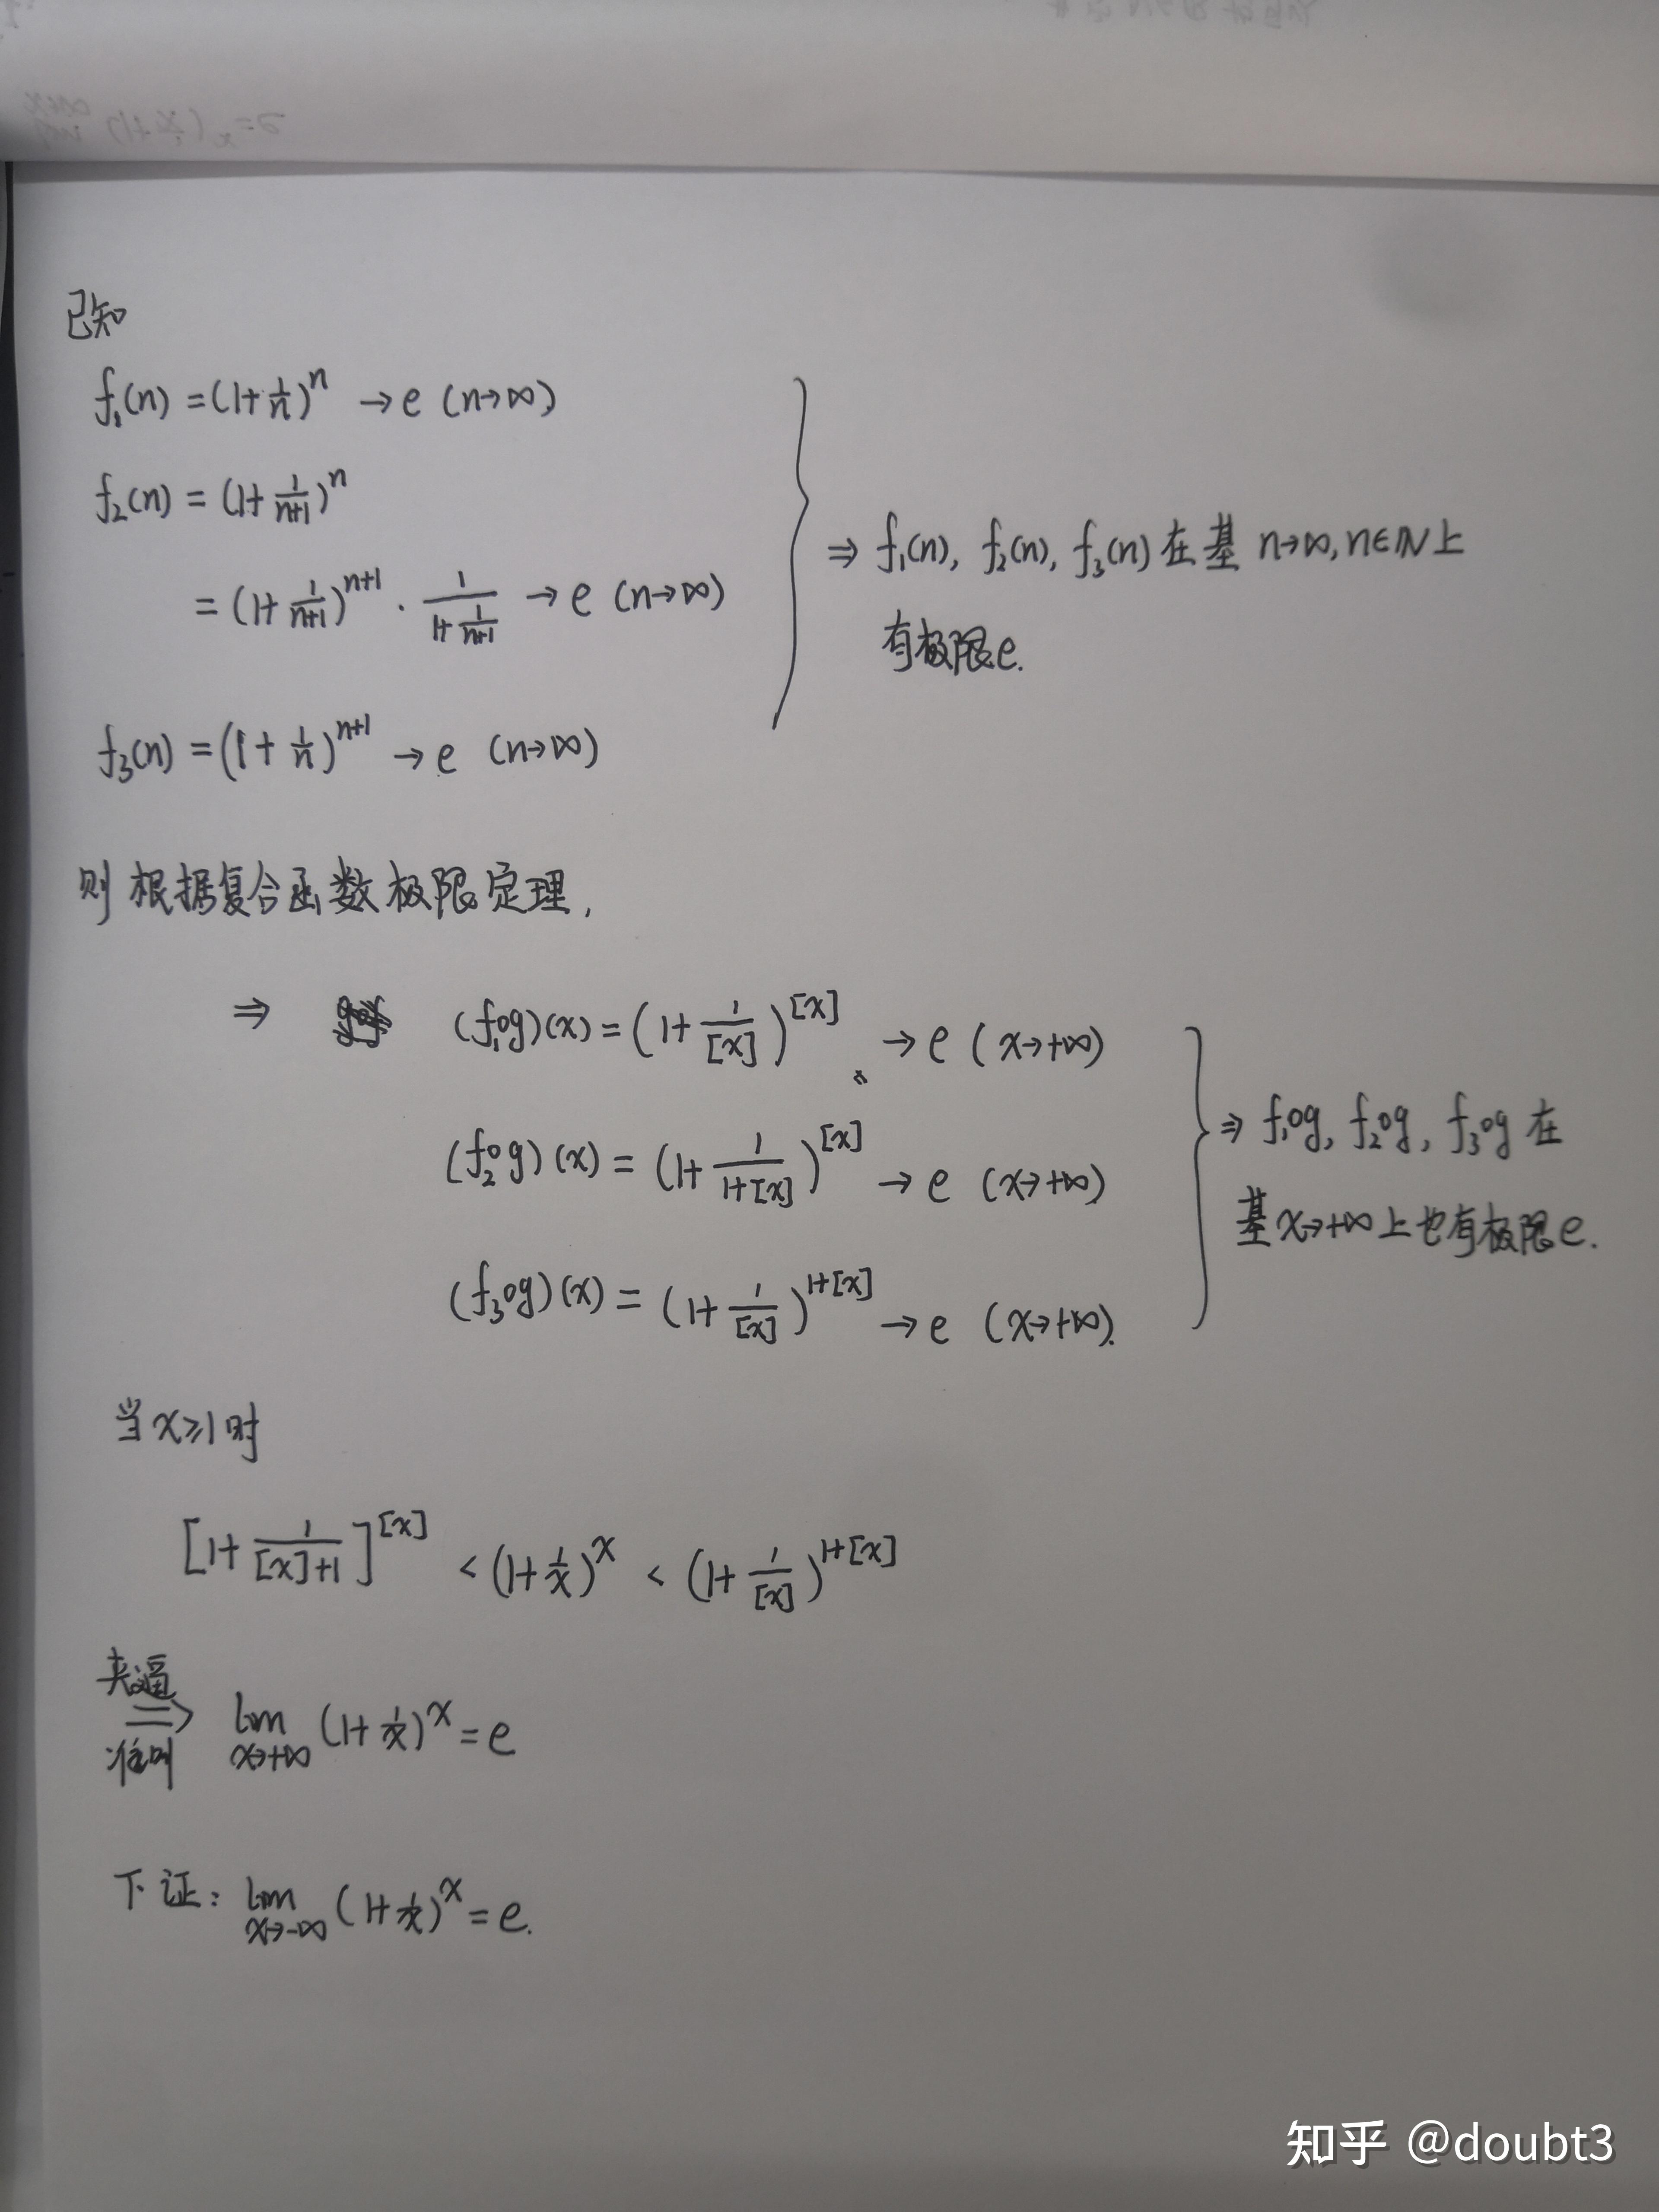 已知
f₁(n) = (1+1/n)^n → e (n→∞)
f₂(n) = (1+1/(n+1))^n
= (1+1/(n+1))^(n+1) · 1/(1+1/(n+1)) → e (n→∞)
f₃(n) = (1+1/n)^(n+1) → e (n→∞)
⇒ f₁(n), f₂(n), f₃(n) 在基 n→∞, n∈ℕ上
有极限e.
则根据复合函数极限定理,
⇒ (f₁∘g)(x) = (1+1/[x])^[x] → e (x→+∞)
(f₂∘g)(x) = (1+1/(1+[x]))^[x] → e (x→+∞)
(f₃∘g)(x) = (1+1/[x])^(1+[x]) → e (x→+∞).
⇒ f₁∘g, f₂∘g, f₃∘g 在
基x→+∞上也有极限e.
当x≥1时
[1+1/([x]+1)]^[x] < (1+1/x)^x < (1+1/[x])^(1+[x])
夹逼
准则
⇒ lim x→+∞ (1+1/x)^x = e
下证: lim x→-∞ (1+1/x)^x = e.
知乎 @doubt3